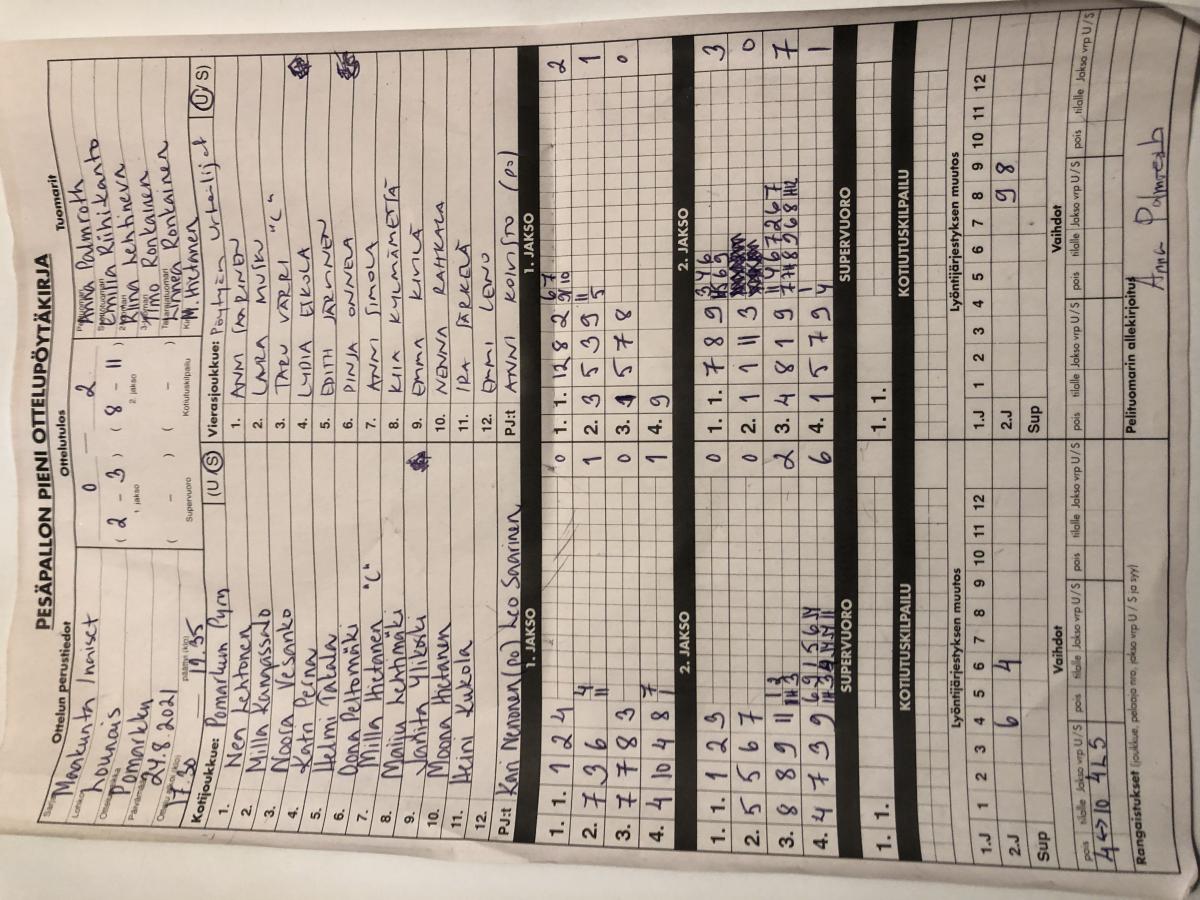 PESÄPALLON PIENI OTTELUPÖYTÄKIRJA
Ottelun perustiedot
Ottelutulos
Tuomarit
Maakunta Naiset
Lounais
Pomarkku
24.8.2021
17.30 — 19.35
päättyi (klo)
0 — 2
( 2 - 3 ) ( 8 - 11 )
1. jakso 2. jakso
( - ) ( - )
Supervuoro Kotiutuskilpailu
Anna Palmroth
Emilia Riihikanto
Riina Lehtineva
Timo Ronkainen
Linnea Ronkainen
M. Hietanen
Kotijoukkue: Pomarkun Pyry (U/S)
1. Nea Lehtonen
2. Milla Kanassalo
3. Noora Vesanko
4. Katri Perna
5. Helmi Tatala
6. Oona Peltomäki
7. Milla Hietanen "C"
8. Maiju Lehtimäki
9. Janita Ylikoski
10. Moona Hietanen
11. Heini Kukola
12.
PJ:t Kari Nemonen (po) Leo Saarinen
Vierasjoukkue: Pöytyän Urheilijat (U/S)
1. ANNI SAARINEN
2. LAURA MUSKU
3. TARU VÄRRI "C"
4. LYDIA EIKOLA
5. EDITH JÄRVINEN
6. PINJA ONNELA
7. ANNI SIMOLA
8. KIIA KYLMÄMETSÄ
9. EMMA KIVILÄ
10. NENNA RAHKALA
11. IRA JÄRKELÄ
12. EMMI LENO
PJ:t ANNI KOIVISTO (po)
1. JAKSO
1. 1. 1 2 4 0
2. 7 3 6 4 11 1
3. 7 7 8 3 0
4. 4 10 4 8 7 1
1. JAKSO
1. 1. 12 8 2 9 6 7 10 2
2. 3 5 3 9 11 5 1
3. 1 5 7 8 0
4. 9
2. JAKSO
1. 1. 1 2 3 0
2. 5 5 6 7 0
3. 8 8 9 11 2
4. 4 7 3 9 6
2. JAKSO
1. 1. 7 8 9 3
2. 1 1 11 3 0
3. 4 8 1 9 7
4. 1 5 7 9 1
SUPERVUORO
1. 1.
SUPERVUORO
1. 1.
KOTIUTUSKILPAILU
KOTIUTUSKILPAILU
Lyöntijärjestyksen muutos
1.J 1 2 3 4 5 6 7 8 9 10 11 12
2.J 6 4
Sup
Lyöntijärjestyksen muutos
1.J 1 2 3 4 5 6 7 8 9 10 11 12
2.J 9 8
Sup
Vaihdot
pois tilalle Jakso vrp U/S pois tilalle Jakso vrp U/S pois tilalle Jakso vrp U/S
4<->10 4L5
Vaihdot
pois tilalle Jakso vrp U/S pois tilalle Jakso vrp U/S
Rangaistukset (joukkue, pelaaja nro, jakso vrp U / S ja syy)
Pelituomarin allekirjoitus
Anna Palmroth